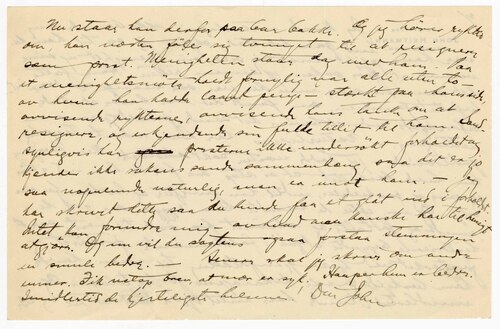 Nu staar han derfor paa bar bakke. Og jeg hører rykter
om, han næsten føler sig tvunget til at resignere
som prost. Menigheten staar dog med ham. Paa
et menighetsmøte holdt forrige var alle uten to
av hvem han hadde laant penge – sterkt paa hans side,
avvisende rykterne, avvisende hans tanke om at
resignere, og erkjendende sin fulde tillit til ham. Sand-
synligvis har prosterne ikke undersøkt forholdet og
kjender ikke sakens sande sammenhæng saa det er jo
saa nogenlunde naturlig, men er imot ham. – Jeg
har skrevet dette saa du kunde faa et glöt ind i forholdet.
Intet kan forundre mig – avhold man kanske han til
at gjøre. Og nu vil du sagtens ogsaa forstaa stemningen
en smule bedre. – Senere skal jeg skrive om andre
emner. Fik netop brev, at mor er syk. Haaper hun er bedre.
Imidlertid de hjerteligste hilsener. Din John